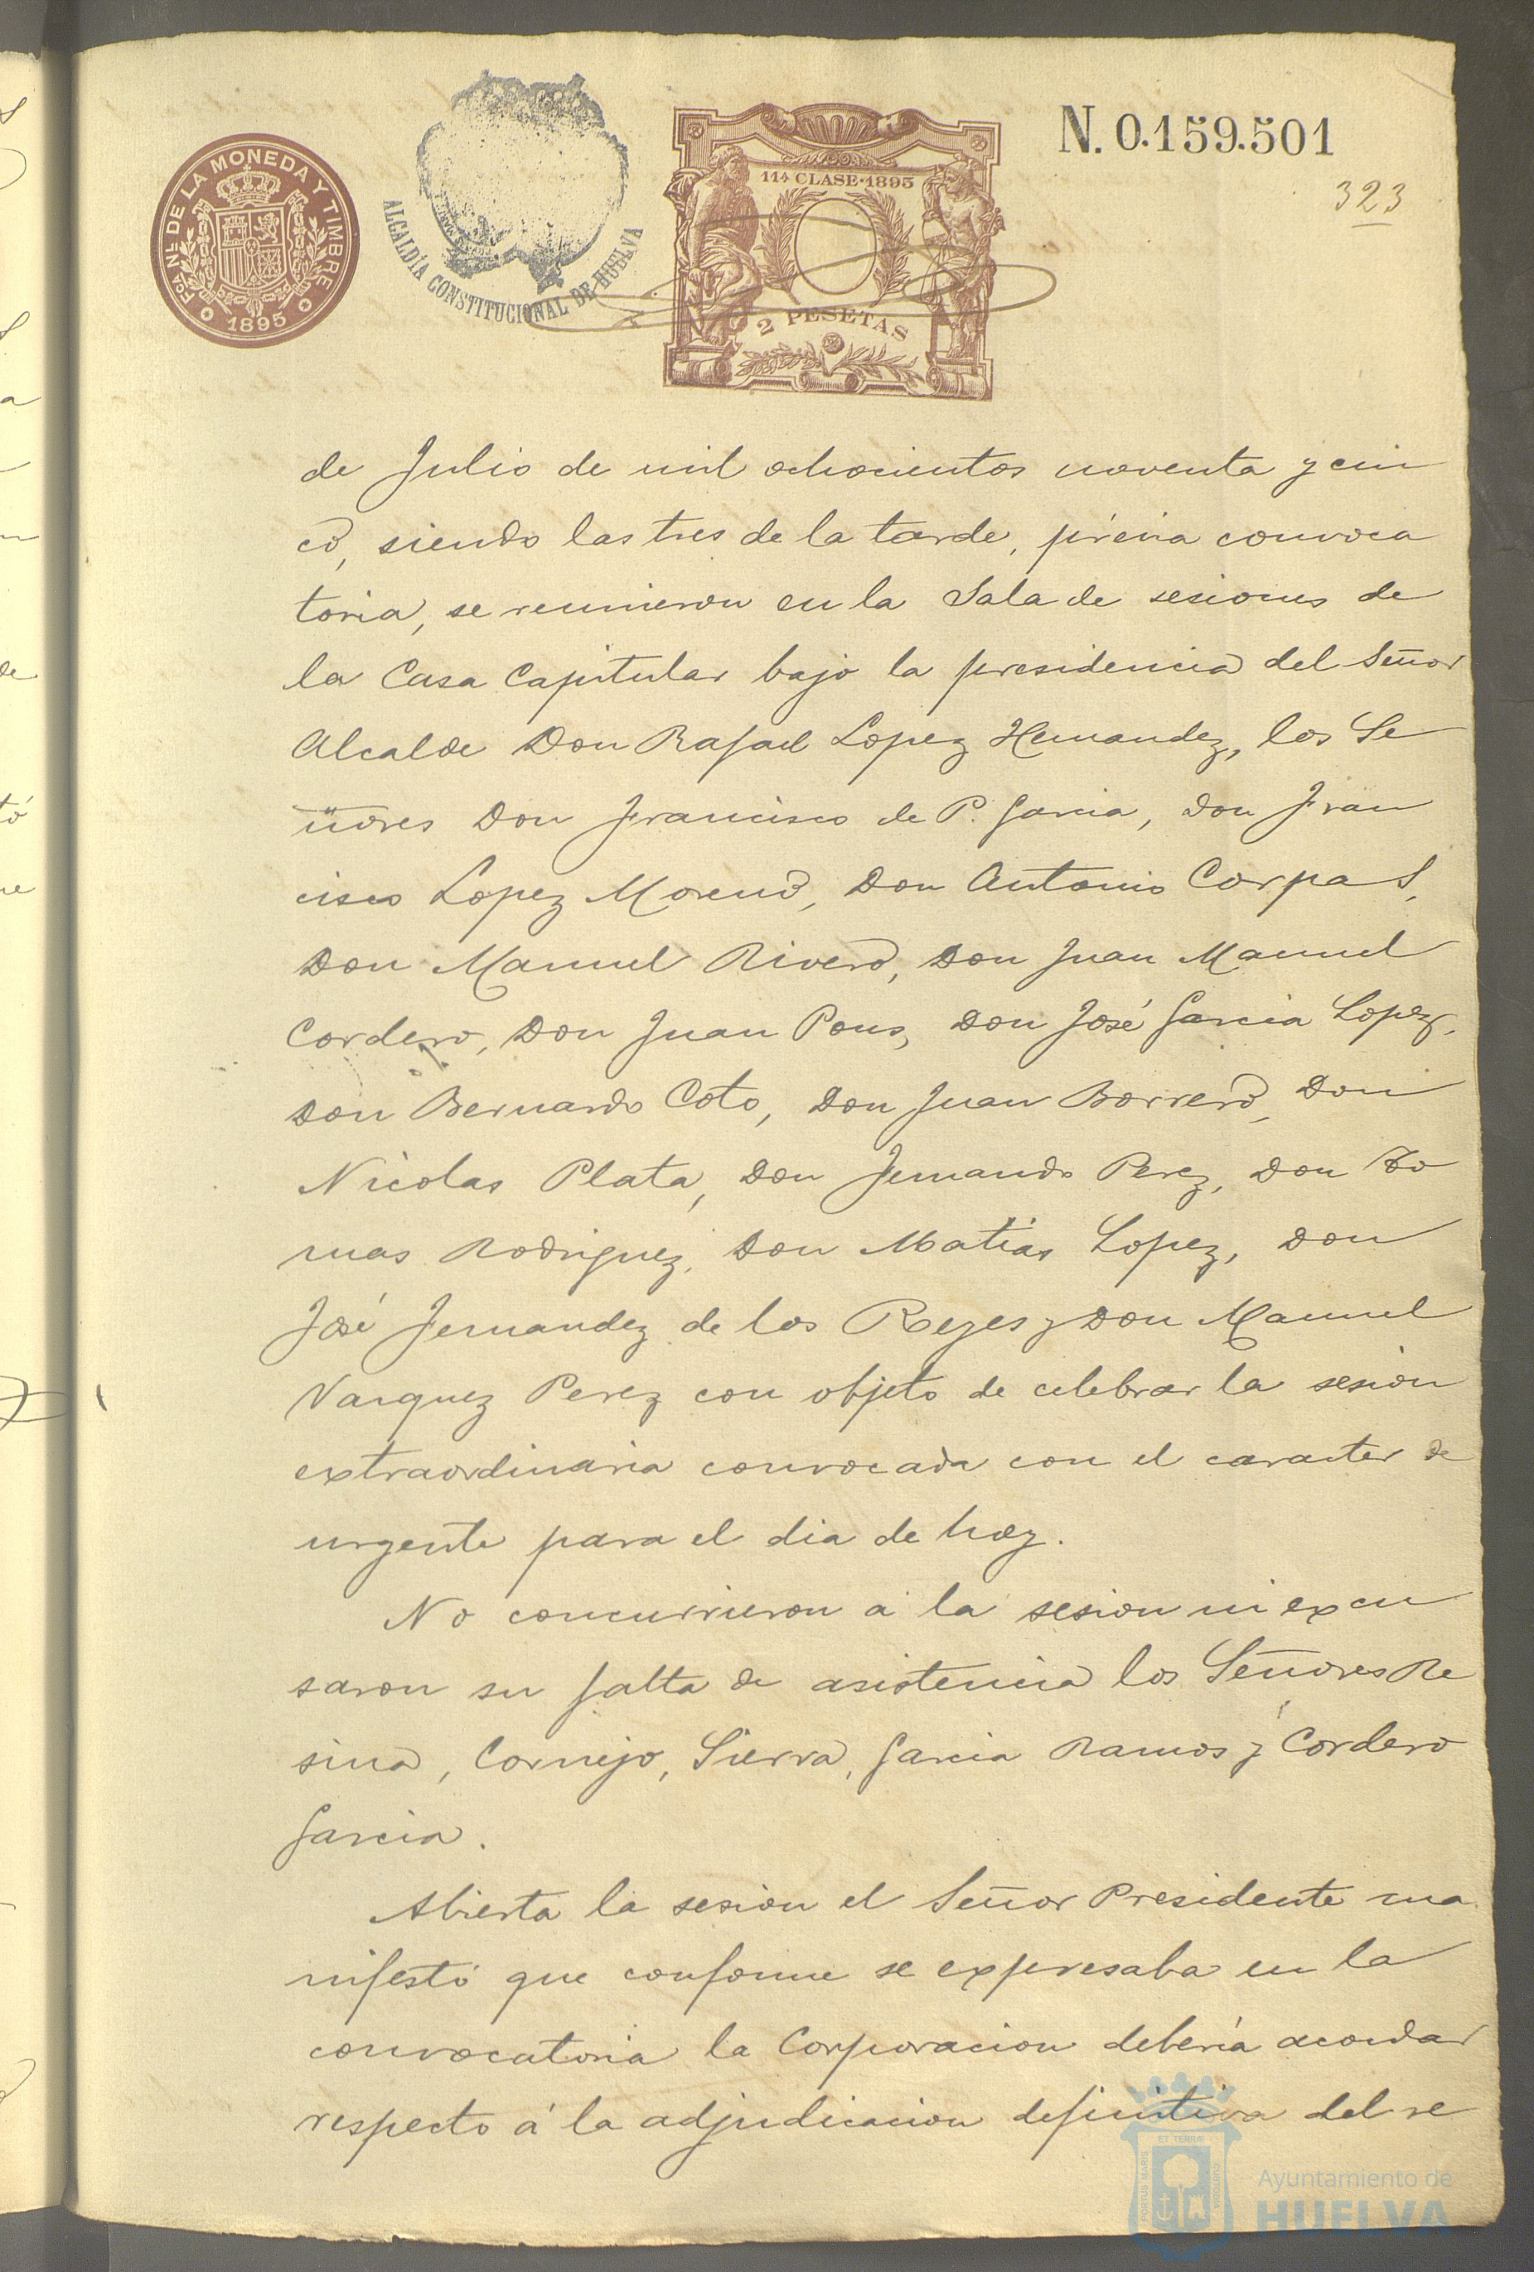 FCA. NL. DE LA MONEDA Y TIMBRE
1895
ALCALDÍA CONSTITUCIONAL DE HUELVA
11ª CLASE·1895
2 PESETAS
N. 0.159.501
323
de Julio de mil ochocientos noventa y cin
co, siendo las tres de la tarde, prévia convoca
toria, se reunieron en la Sala de sesiones de
la Casa Capitular bajo la presidencia del Señor
Alcalde Don Rafael Lopez Hernandez, los Se
ñores Don Francisco de P. Garcia, Don Fran
cisco Lopez Moreno, Don Antonio Corpas,
Don Manuel Rivero, Don Juan Manuel
Cordero, Don Juan Pons, Don José Garcia Lopez,
Don Bernardo Coto, Don Juan Borrero, Don
Nicolas Plata, Don Fernando Perez, Don To
mas Rodriguez, Don Matías Lopez, Don
José Fernandez de los Reyes y Don Manuel
Vazquez Perez con objeto de celebrar la sesion
extraordinaria convocada con el caracter de
urgente para el dia de hoy.
No concurrieron á la sesion ni excu
saron su falta de asistencia los Señores Re
sina, Cornejo, Sierra, Garcia Ramos y Cordero
Garcia.
Abierta la sesion el Señor Presidente ma
nifestó que conforme se expresaba en la
convocatoria la Corporacion debería acordar
respecto á la adjudicacion definitiva del re
PORTUS MARIS ET TERRAE CUSTODIA
Ayuntamiento de
HUELVA